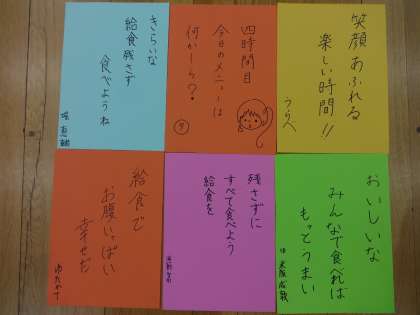 笑顔あふれる
楽しい時間!!
うらへ
四時間目
今日のメニューは
何かしら?
きらいな
給食残さず
食べようね
おいしいな
みんなで食べれば
もっとうまい
残さずに
すべて食べよう
給食を
給食で
お腹いっぱい
幸せだ